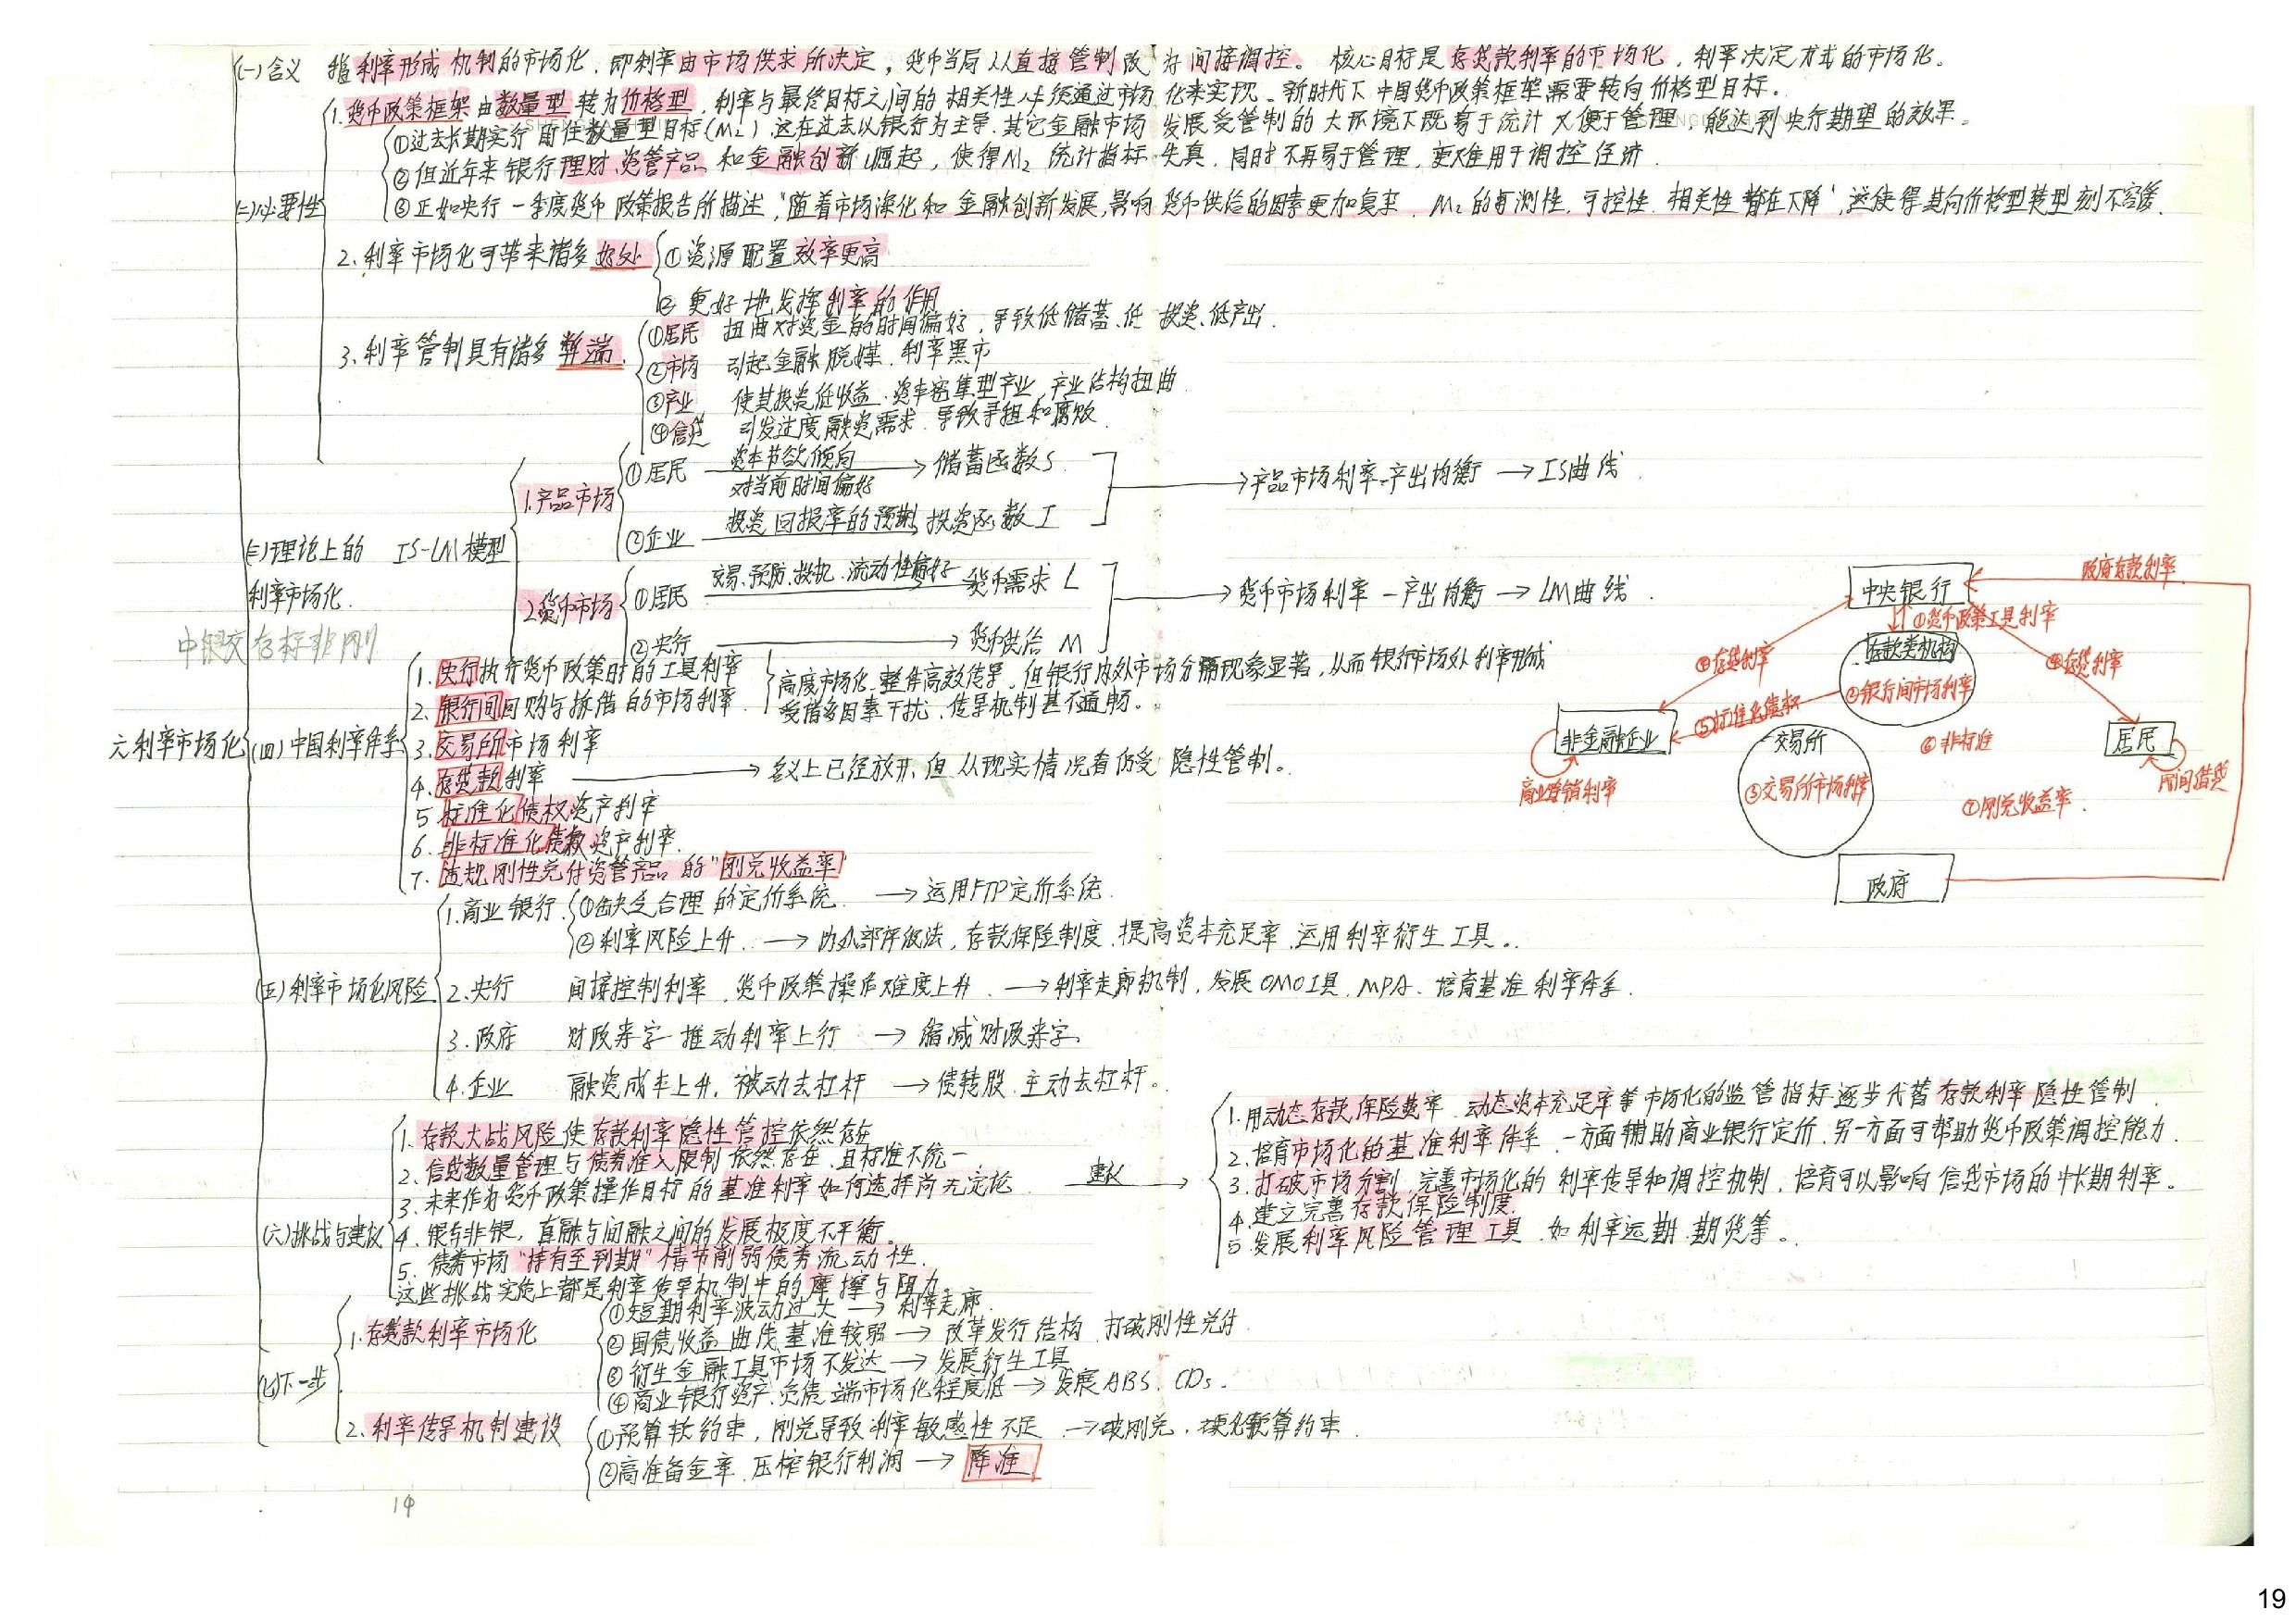 六、利率市场化
(一)含义 指利率形成机制的市场化,即利率由市场供求所决定,货币当局从直接管制改为间接调控。核心目标是存贷款利率的市场化,利率决定方式的市场化。
(二)必要性
1.货币政策框架由数量型转为价格型,利率与最终目标之间的相关性必须通过市场化来实现。新时代下中国货币政策框架需要转向价格型目标。
①过去长期实行盯住数量型目标(M2),这在过去以银行为主导,其它金融市场发展受管制的大环境下既易于统计又便于管理,能达到央行期望的效果。
②但近年来银行理财、资管产品和金融创新崛起,使得M2统计指标失真,同时不再易于管理,更难用于调控经济.
③正如央行一季度货币政策报告所描述,"随着市场深化和金融创新发展,影响货币供给的因素更加复杂,M2的可测性,可控性,相关性都在下降",这使得其向价格型转型刻不容缓.
2.利率市场化可带来诸多好处
①资源配置效率更高
②更好地发挥利率的作用
3.利率管制具有诸多弊端
①居民 扭曲对资金的时间偏好,导致低储蓄、低投资、低产出.
②市场 引起金融脱媒,利率黑市
③产业 使其投资低收益、资本密集型产业,产业结构扭曲.
④信贷 引发过度融资需求,导致寻租和腐败.
(三)理论上的利率市场化. IS-LM模型
1.产品市场
①居民 资本节欲倾向 对当前时间偏好 → 储蓄函数S.
②企业 投资回报率的预测 → 投资函数I
→ 产品市场利率-产出均衡 → IS曲线.
2.货币市场
①居民 交易、预防、投机、流动性偏好 → 货币需求L
②央行 → 货币供给M
→ 货币市场利率-产出均衡 → LM曲线.
中银交存标非刚
(四)中国利率体系
1.央行执行货币政策时的工具利率
2.银行间回购与拆借的市场利率
高度市场化、整体高效传导,但银行内外市场分隔现象显著,从而银行市场外利率形成
受诸多因素干扰,传导机制甚不通畅。
3.交易所市场利率
4.存贷款利率 → 名义上已经放开,但从现实情况看仍受隐性管制。
5.标准化债权资产利率
6.非标准化债权资产利率.
7.违规刚性兑付资管产品的"刚兑收益率"
中央银行
政府存款利率
①货币政策工具利率
存款类机构
②银行间市场利率
④存贷利率
④存贷利率
⑤标准化债权
非金融企业
商业赊销利率
交易所
③交易所市场利率
⑥非标准
居民
民间借贷
⑦刚兑收益率.
政府
(五)利率市场化风险
1.商业银行
①缺乏合理的定价系统. → 运用FTP定价系统.
②利率风险上升. → 内外部评级法,存款保险制度,提高资本充足率,运用利率衍生工具。
2.央行 间接控制利率,货币政策操作难度上升. → 利率走廊机制,发展OMO工具、MPA、培育基准利率体系.
3.政府 财政赤字推动利率上行 → 缩减财政赤字.
4.企业 融资成本上升,被动去杠杆 → 债转股,主动去杠杆。
(六)挑战与建议
1.存款大战风险使存款利率隐性管控依然存在
2.信贷数量管理与债券准入限制依然存在,且标准不统一.
3.未来作为货币政策操作目标的基准利率如何选择尚无定论.
4.银与非银,直融与间融之间的发展极度不平衡。
5.债券市场"持有至到期"情节削弱债券流动性.
这些挑战实质上都是利率传导机制中的摩擦与阻力.
建议 →
1.用动态存款保险费率、动态资本充足率等市场化的监管指标逐步代替存款利率隐性管制.
2.培育市场化的基准利率体系,一方面辅助商业银行定价,另一方面可帮助货币政策调控能力.
3.打破市场分割,完善市场化的利率传导和调控机制,培育可以影响信贷市场的中长期利率。
4.建立完善存款保险制度.
5.发展利率风险管理工具,如利率远期、期货等。
(七)下一步
1.存贷款利率市场化
①短期利率波动过大 → 利率走廊.
②国债收益曲线基准较弱 → 改革发行结构,打破刚性兑付.
③衍生金融工具市场不发达 → 发展衍生工具
④商业银行资产、负债端市场化程度低 → 发展ABS、CDs.
2.利率传导机制建设
①预算软约束,刚兑导致利率敏感性不足 → 破刚兑,硬化预算约束.
②高准备金率,压榨银行利润 → 降准
19